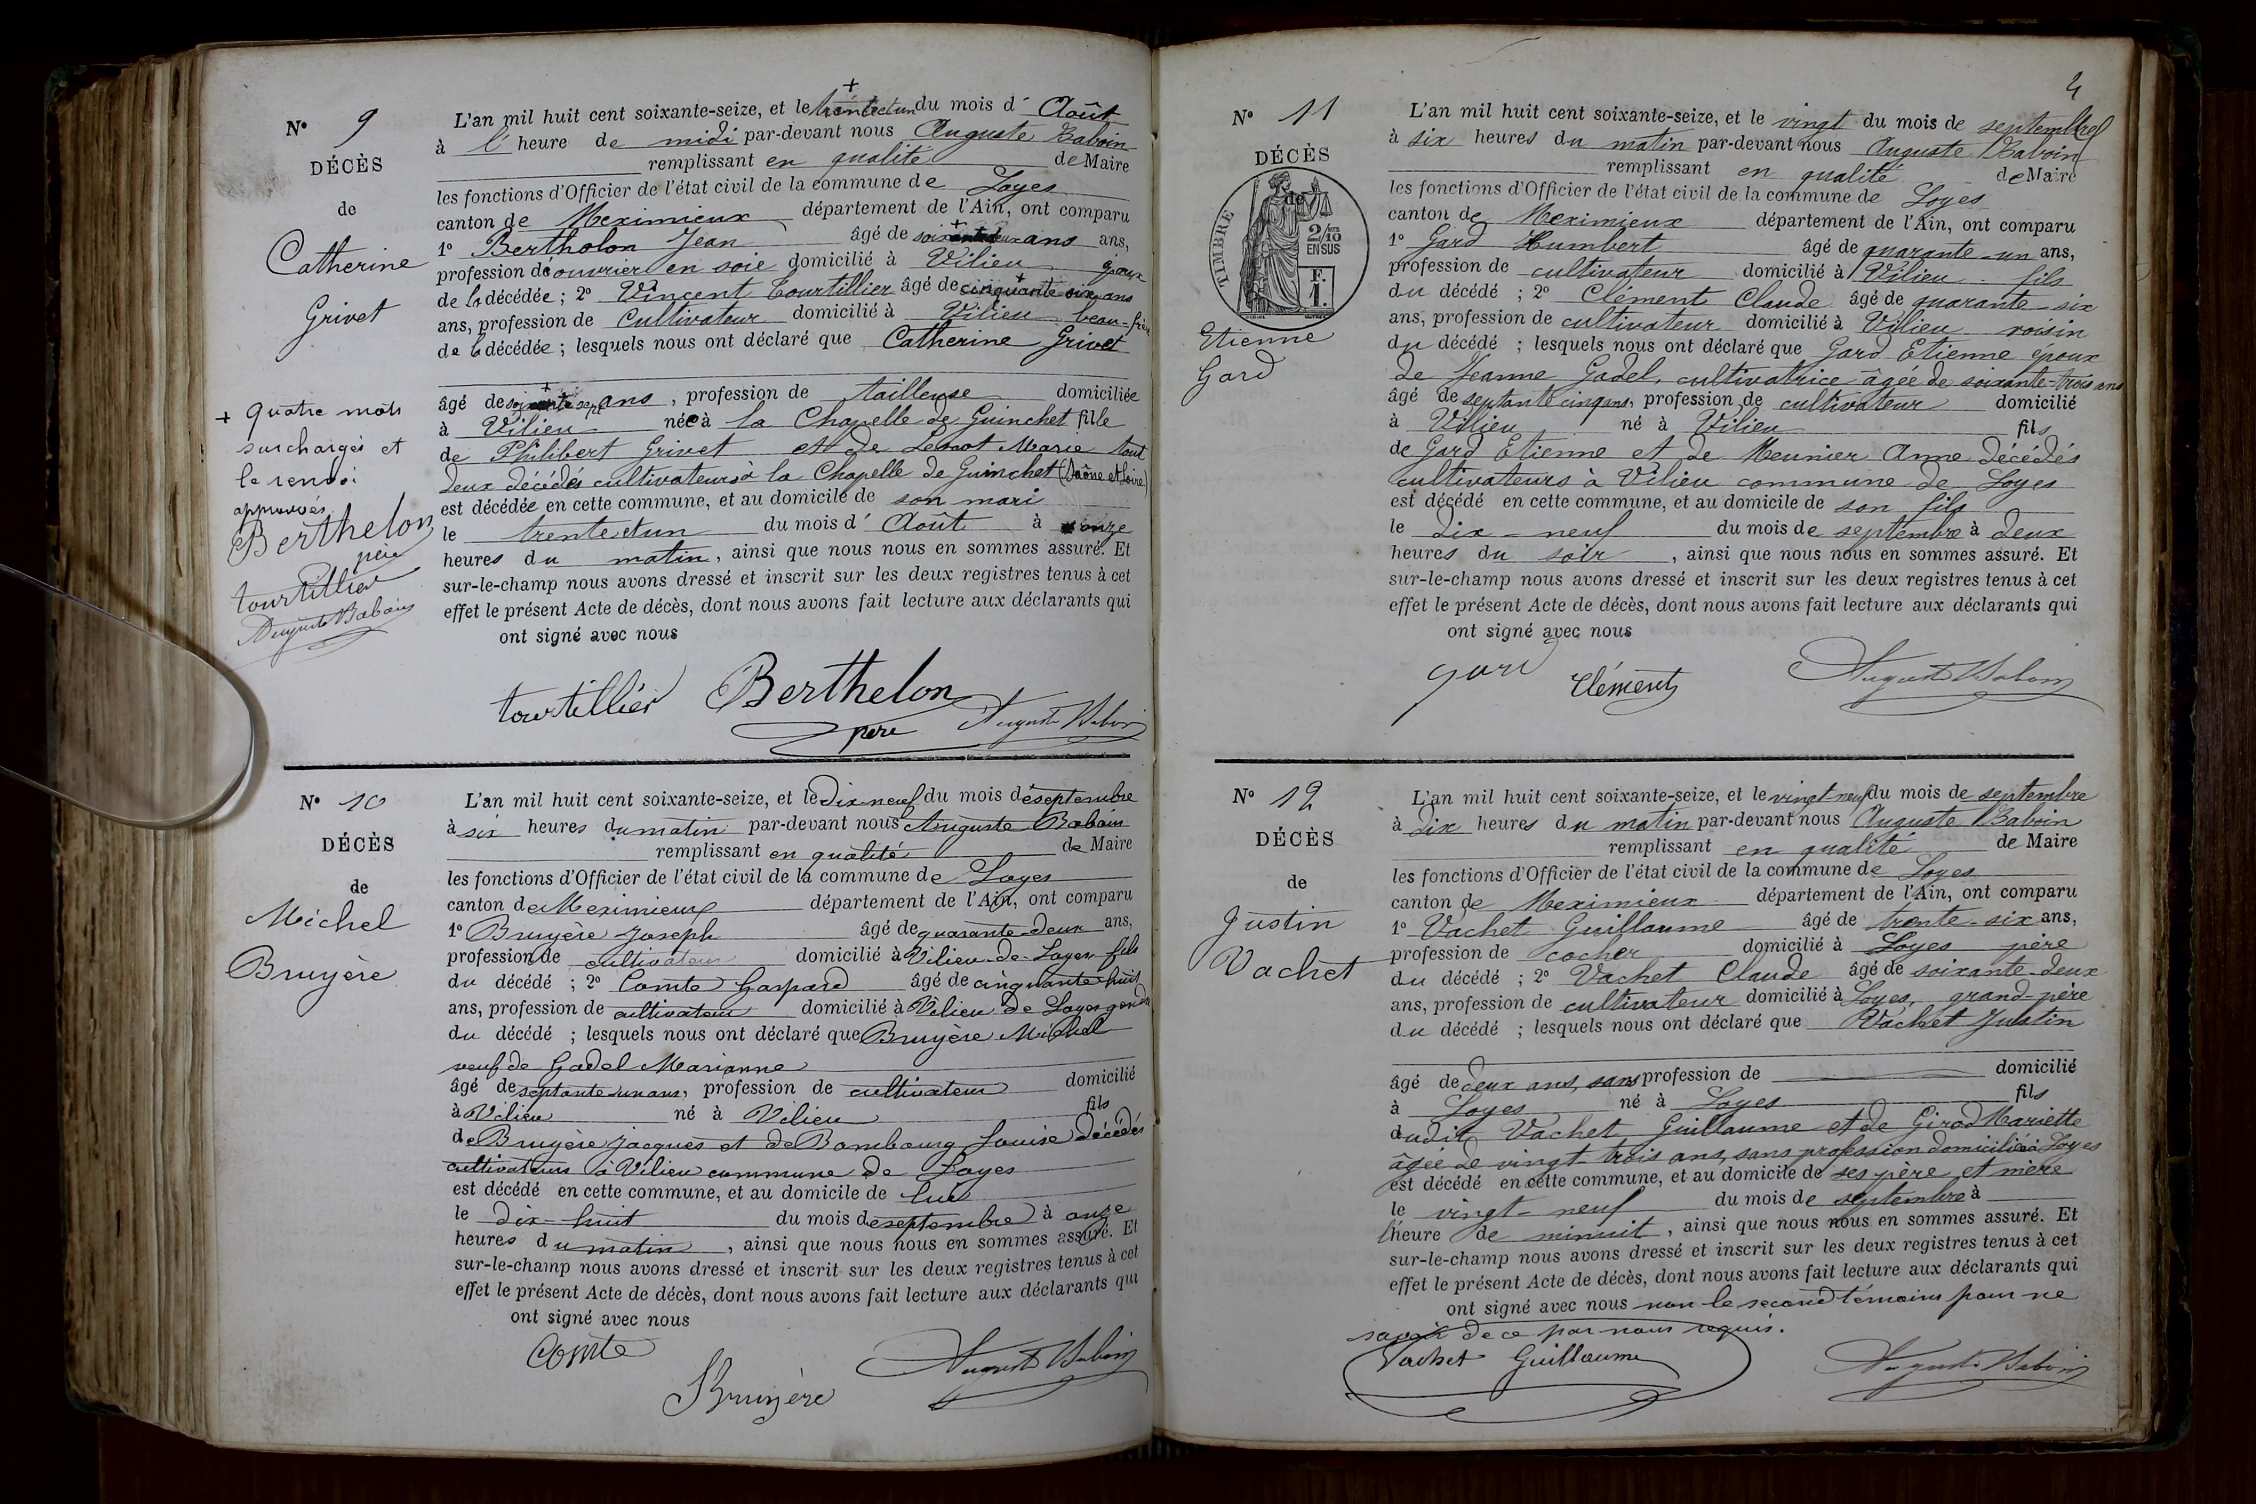 N° 9
DÉCÈS
de
Catherine
Grivet
+ quatre mots
surchargés et
le renvoi
approuvés
Berthelon
père
tourtillier
Auguste Baboin
L'an mil huit cent soixante-seize, et le trente et un du mois d' Août
à l' heure de midi par-devant nous Auguste Baboin
remplissant en qualité de Maire
les fonctions d'Officier de l'état civil de la commune de Loyes
canton de Meximieux département de l'Ain, ont comparu
1° Bertholon Jean âgé de ans ans,
profession de ouvrier en soie domicilié à Vilieu époux
de la décédée ; 2° Vincent Tourtillier âgé de cinquante six ans
ans, profession de Cultivateur domicilié à Vilieu beau-frère
de la décédée ; lesquels nous ont déclaré que Catherine Grivet
âgé de soixante sept ans, profession de tailleuse domiciliée
à Vilieu née à la Chapelle de Guinchet fille
de Philibert Grivet et de Lenot Marie tout
deux décédés cultivateurs à la Chapelle de Guinchet (Saône et Loire)
est décédée en cette commune, et au domicile de son mari
le trente et un du mois d' Août à onze
heures du matin, ainsi que nous nous en sommes assuré. Et
sur-le-champ nous avons dressé et inscrit sur les deux registres tenus à cet
effet le présent Acte de décès, dont nous avons fait lecture aux déclarants qui
ont signé avec nous
tourtillier Berthelon
père Auguste Baboin
N° 10
DÉCÈS
de
Michel
Bruyère
L'an mil huit cent soixante-seize, et le Dix-neuf du mois de septembre
à six heures du matin par-devant nous Auguste Baboin
remplissant en qualité de Maire
les fonctions d'Officier de l'état civil de la commune de Loyes
canton de Meximieux département de l'Ain, ont comparu
1° Bruyère Joseph âgé de quarante-deux ans,
profession de cultivateur domicilié à Vilieu de Loyes fils
du décédé ; 2° Comte Gaspard âgé de cinquante huit
ans, profession de cultivateur domicilié à Vilieu de Loyes gendre
du décédé ; lesquels nous ont déclaré que Bruyère Michel
veuf de Gadel Marianne
âgé de septante-un ans, profession de cultivateur domicilié
à Vilieu né à Vilieu fils
de Bruyère Jacques et de Bombourg Louise décédés
cultivateurs à Vilieu commune de Loyes
est décédé en cette commune, et au domicile de lui
le dix-huit du mois de septembre à onze
heures du matin, ainsi que nous nous en sommes assuré. Et
sur-le-champ nous avons dressé et inscrit sur les deux registres tenus à cet
effet le présent Acte de décès, dont nous avons fait lecture aux déclarants qui
ont signé avec nous
Comte
Bruyère
Auguste Baboin
4
N° 11
DÉCÈS
de
TIMBRE
2/10 EN SUS
F. 1.
Etienne
Gard
L'an mil huit cent soixante-seize, et le vingt du mois de septembre
à six heures du matin par-devant nous Auguste Baboin
remplissant en qualité de Maire
les fonctions d'Officier de l'état civil de la commune de Loyes
canton de Meximieux département de l'Ain, ont comparu
1° Gard Humbert âgé de quarante-un ans,
profession de cultivateur domicilié à Vilieu fils
du décédé ; 2° Clément Claude âgé de quarante-six
ans, profession de cultivateur domicilié à Vilieu voisin
du décédé ; lesquels nous ont déclaré que Gard Etienne époux
de Jeanne Gadel, cultivatrice âgée de soixante-trois ans
âgé de septante cinq ans, profession de cultivateur domicilié
à Vilieu né à Vilieu fils
de Gard Etienne et de Meunier Anne décédés
cultivateurs à Vilieu commune de Loyes
est décédé en cette commune, et au domicile de son fils
le dix-neuf du mois de septembre à deux
heures du soir, ainsi que nous nous en sommes assuré. Et
sur-le-champ nous avons dressé et inscrit sur les deux registres tenus à cet
effet le présent Acte de décès, dont nous avons fait lecture aux déclarants qui
ont signé avec nous
gard Clément Auguste Baboin
N° 12
DÉCÈS
de
Justin
Vachet
L'an mil huit cent soixante-seize, et le vingt-neuf du mois de septembre
à dix heures du matin par-devant nous Auguste Baboin
remplissant en qualité de Maire
les fonctions d'Officier de l'état civil de la commune de Loyes
canton de Meximieux département de l'Ain, ont comparu
1° Vachet Guillaume âgé de trente-six ans,
profession de cocher domicilié à Loyes père
du décédé ; 2° Vachet Claude âgé de soixante-deux
ans, profession de cultivateur domicilié à Loyes, grand-père
du décédé ; lesquels nous ont déclaré que Vachet Justin
âgé de deux ans, sans profession de domicilié
à Loyes né à Loyes fils
dudit Vachet Guillaume et de Girod Mariette
âgée de vingt-trois ans, sans profession domiciliée à Loyes
est décédé en cette commune, et au domicile de ses père et mère
le vingt-neuf du mois de septembre à
l'heure de minuit, ainsi que nous nous en sommes assuré. Et
sur-le-champ nous avons dressé et inscrit sur les deux registres tenus à cet
effet le présent Acte de décès, dont nous avons fait lecture aux déclarants qui
ont signé avec nous non le second témoins pour ne
savoir de ce par nous requis.
Vachet Guillaume Auguste Baboin